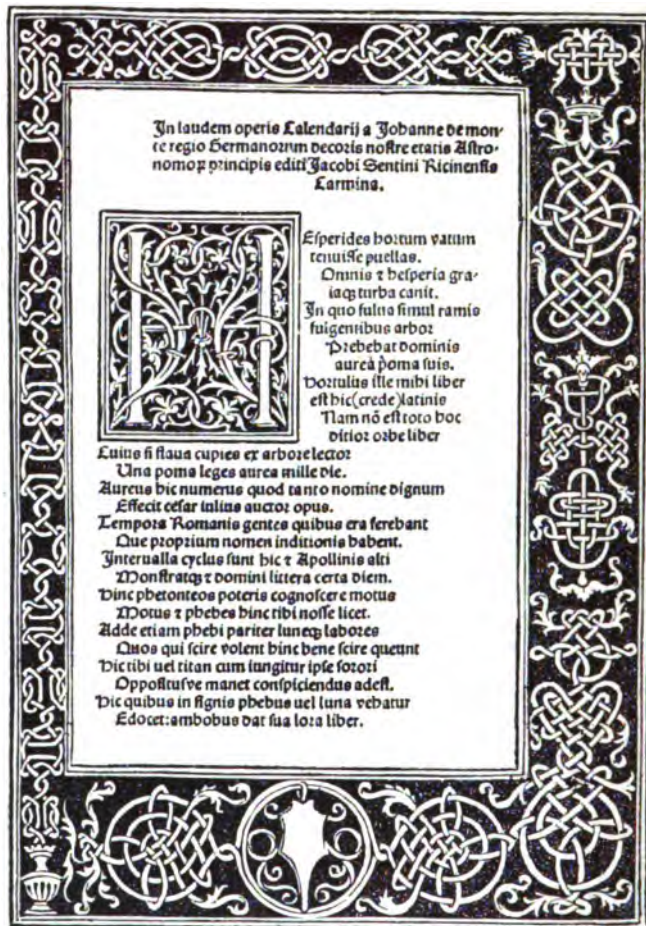 In laudem operis Calendarij a Johanne de mon-
te regio Germanorum decoris nostre etatis Astro-
nomoꝝ principis editi Jacobi Sentini Ricinensis
Carmina.
HEsperides hortum vatum
tenuisse puellas.
Omnis ⁊ hesperia gra-
iaqꝫ turba canit.
In quo fulua simul ramis
fulgentibus arbor
Prebebat dominis
aurea poma suis.
Hortulus iste mihi liber
est hic (crede) latinis
Nam nō est toto hoc
ditior orbe liber
Cuius si flaua cupies ex arbore lector
Una poma leges aurea mille die.
Aureus hic numerus quod tanto nomine dignum
Effecit cesar iulius auctor opus.
Tempora Romanis gentes quibus era ferebant
Que proprium nomen inditionis habent.
Interualla cyclus sunt hic ⁊ Apollinis alti
Monstratqꝫ ⁊ domini littera certa diem.
Hinc phetonteos poteris cognoscere motus
Motus ⁊ phebes hinc tibi nosse licet.
Adde etiam phebi pariter luneqꝫ labores
Quos qui scire volent hinc bene scire queunt
Hic tibi uel titan cum iungitur ipse sorori
Oppositusve manet conspiciendus adest.
Hic quibus in signis phebus uel luna vehatur
Edocet: ambobus dat sua lora liber.